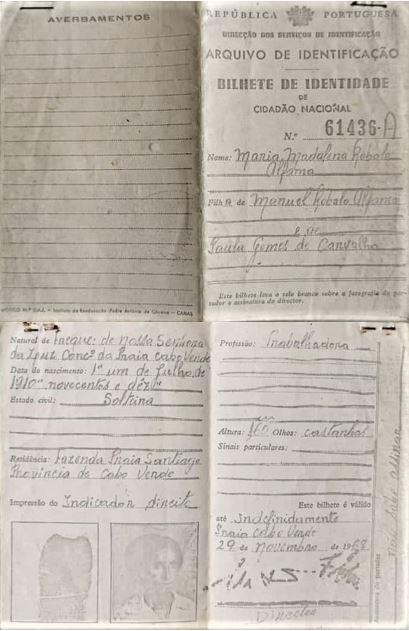 AVERBAMENTOS
REPÚBLICA PORTUGUESA
DIRECÇÃO DOS SERVIÇOS DE IDENTIFICAÇÃO
ARQUIVO DE IDENTIFICAÇÃO
BILHETE DE IDENTIDADE
DE
CIDADÃO NACIONAL
N.º 61436-A
Nome: Maria Madalena Robalo
Alfama
Filh a de Manuel Robalo Alfama
e de
Paula Gomes de Carvalho
Este bilhete leva o selo branco sobre a fotografia do por-
tador e assinatura do director.
Instituto de Reeducação Padre António de Oliveira - CAXIAS
Natural de Freguesª de Nossa Senhora
da Conc.º da Praia Cabo Verde
Data do nascimento: 1º um de Julho de
1910 novecentos e dez
Estado civil: Solteira
Residência: Fazenda Praia Santiago
Provincia de Cabo Verde
Impressão do Indicador direito
Profissão: Trabalhadora
Altura: Olhos: castanhos
Sinais particulares:
Este bilhete é válido
até Indefinidamente
Praia Cabo Verde
29 de Novembro de 1968
Director
Não sabe assinar